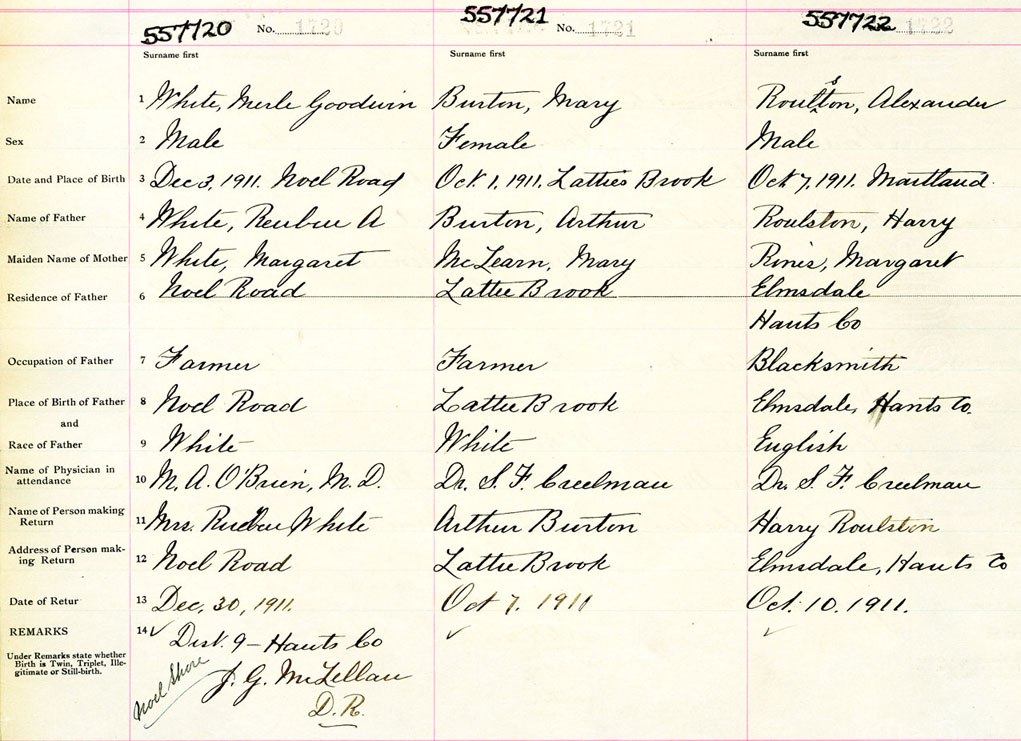 557720 No. 1720 557721 No. 1721 557722 1722
Surname first Surname first Surname first
Name 1 White, Merle Goodwin Burton, Mary Roulston, Alexander
Sex 2 Male Female Male
Date and Place of Birth 3 Dec 3, 1911. Noel Road Oct. 1, 1911. Latties Brook Oct 7, 1911. Maitland.
Name of Father 4 White, Reuben A Burton, Arthur Roulston, Harry
Maiden Name of Mother 5 White, Margaret McLearn, Mary Rines, Margaret
Residence of Father 6 Noel Road Lattie Brook Elmsdale
Hants Co
Occupation of Father 7 Farmer Farmer Blacksmith
Place of Birth of Father 8 Noel Road Lattie Brook Elmsdale, Hants Co.
and
Race of Father 9 White White English
Name of Physician in
attendance 10 M. A. O'Brien, M. D. Dr. S. F. Creelman Dr. S. F. Creelman
Name of Person making
Return 11 Mrs. Rueben White Arthur Burton Harry Roulston
Address of Person mak-
ing Return 12 Noel Road Lattie Brook Elmsdale, Hants Co
Date of Retur 13 Dec. 30, 1911. Oct 7. 1911 Oct. 10. 1911.
REMARKS 14 ✓ Dist. 9 - Hants Co ✓ ✓
Under Remarks state whether
Birth is Twin, Triplet, Ille-
gitimate or Still-birth.
Noel Shore J. G. McLellan
D. R.